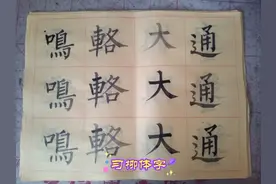 鳴輅大通
鳴輅大通
鳴輅大通
习柳体字